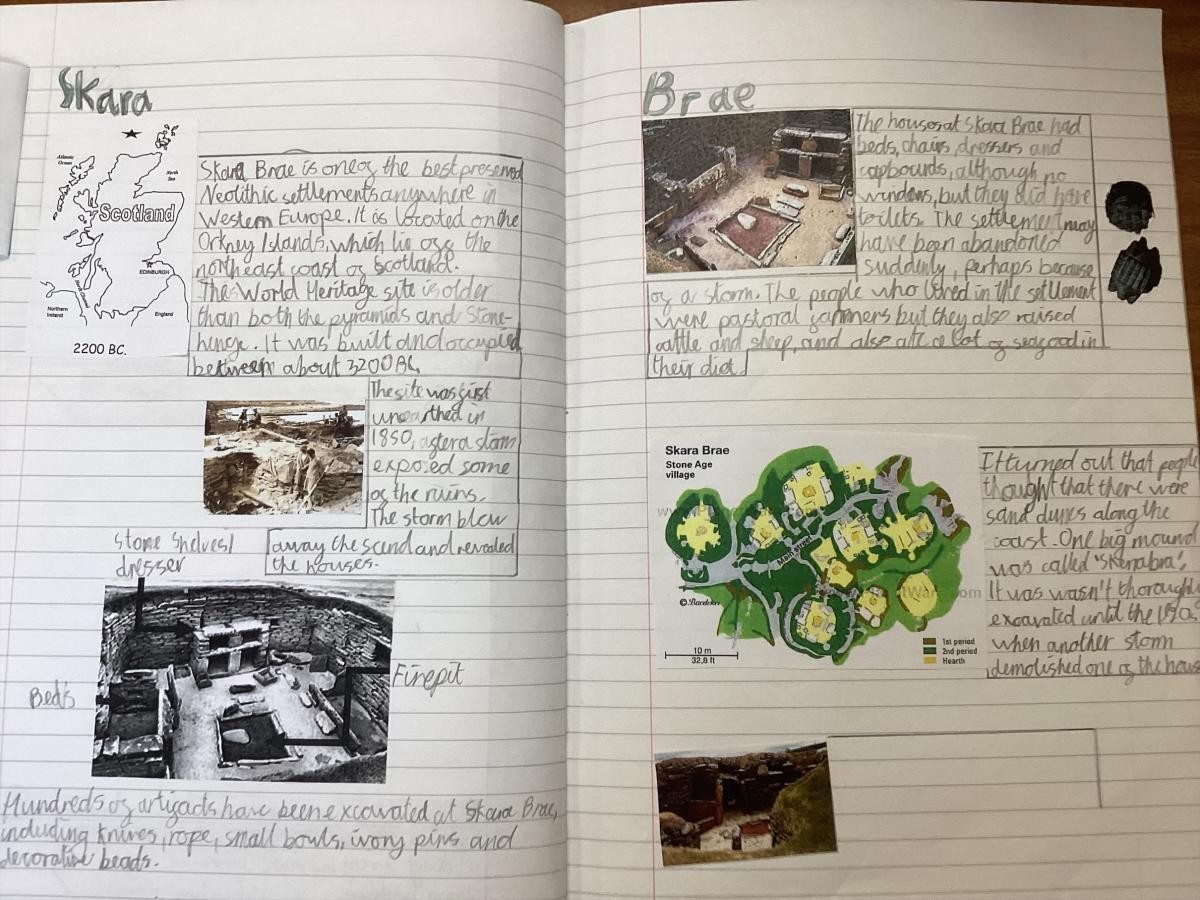 Skara
Atlantic
Ocean
North
Sea
Scotland
EDINBURGH
North Channel
Northern
Ireland
England
2200 BC.
Skara Brae is one of the best preserved
Neolithic settlements anywhere in
Western Europe. It is located on the
Orkney Islands, which lie off the
northeast coast of Scotland.
The World Heritage site is older
than both the pyramids and Stone-
henge. It was built and occupied
between about 3200BC.
The site was first
unearthed in
1850, after a storm
exposed some
of the ruins.
The storm blew
away the sand and revealed
the houses.
stone shelves/
dresser
Firepit
Beds
Hundreds of artifacts have been excavated at Skara Brae,
including knives, rope, small bowls, ivory pins and
decorative beads.
Brae
The houses at Skara Brae had
beds, chairs, dressers and
capboards, although no
windows, but they did have
toilets. The settlement may
have been abandoned
suddenly, perhaps because
of a storm. The people who lived in the settlement
were pastoral farmers but they also raised
cattle and sheep, and also ate a lot of seafood in
their diet
Skara Brae
Stone Age
village
Main street
© Baedeker
10 m
32,8 ft
1st period
2nd period
Hearth
It turned out that people
thought that there were
sand dunes along the
coast. One big mound
was called "Skerrabra".
It was wasn't thorough
excavated until the
when another storm
demolished one of the hous